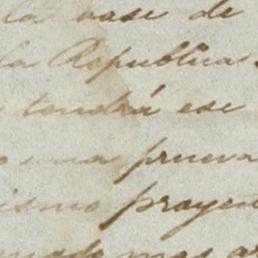 la base de
la Republica
tendrá ese
una prueva
ismo proyec
mas